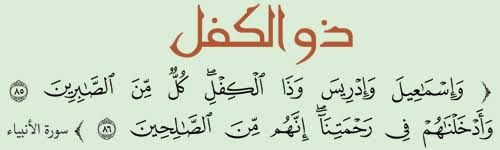 ذو الكفل
﴿ وَإِسْمَاعِيلَ وَإِدْرِيسَ وَذَا الْكِفْلِ ۖ كُلٌّ مِّنَ الصَّابِرِينَ ۝٨٥
وَأَدْخَلْنَاهُمْ فِي رَحْمَتِنَا ۖ إِنَّهُم مِّنَ الصَّالِحِينَ ۝٨٦ ﴾ سورة الأنبياء